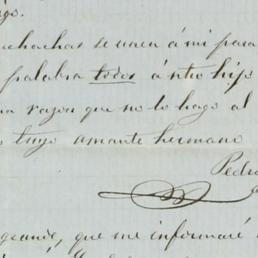 uchachas se unen á mi para
palabra todos á ntro hijo
razon que no lo hago al
tuyo amante hermano
Pedro
grande, que me informaré